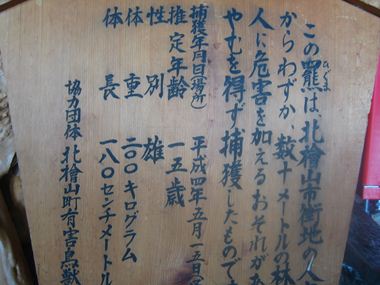 この羆は、北檜山市街地の人
ひぐま
からわずか 数十メートルの林
人に危害を加えるおそれがあ
やむを得ず捕獲したもので
捕獲年月日(場所) 平成四年五月一五日
推定年齢 一五歳
性別 雄
体重 二〇〇キログラム
体長 一八〇センチメートル
協力団体 北檜山町有害鳥獣